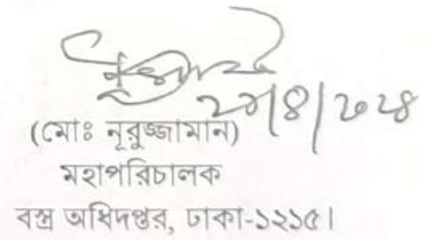 ২৯/৪/২০২৪
(মোঃ নূরুজ্জামান)
মহাপরিচালক
বস্ত্র অধিদপ্তর, ঢাকা-১২১৫।